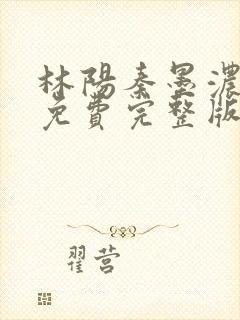 林陽秦墨濃
免費完整版
翟营